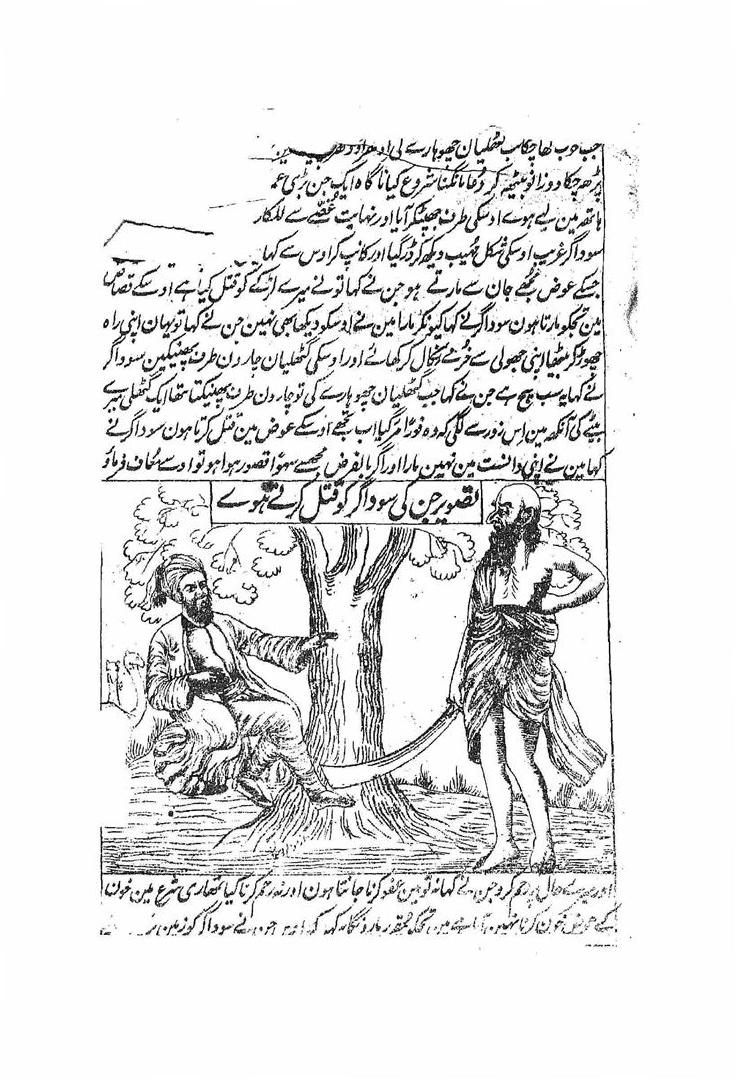 جب خوب کھا چکا تب گٹھلیان چھوہارے کی ادھر اودھر
پڑھ چکا دوزانو بیٹھہ کر دُعا مانگنا شروع کیا ناگاہ ایک جن بڑی
ہاتھ مین لیے ہوے اوسکی طرف جھپٹکر آیا اور نہایت غصے سے للکار
سوداگر غریب اوسکی شکل مہیب دیکھ کر ڈر گیا اور کانپ کر اوس سے کہا
جسکے عوض مجھے جان سے مارتے ہو جن نے کہا تونے میرے لڑکے کو قتل کیا ہے اوسکے قصاص
مین تجکو مارتا ہون سوداگر نے کہا کیونکر مارا مین نے اوسکو دیکھا بھی نہین جن نے کہا تو یہان اپنی راہ
چھوڑ کر بیٹھا اپنی جھولی سے خرمے نکال کر کھائے اور اوسکی گٹھلیان چارون طرف پھینکین سوداگر
نے کہا یہ سب سچ ہے جن نے کہا جب گٹھلیان چھوہارے کی تو چارون طرف پھینکتا تھا ایک گٹھلی میرے
بیٹے کی آنکھ مین اس زور سے لگی کہ وہ فوراً مرگیا اب تجھے اوسکے عوض مین قتل کرتا ہون سوداگر نے
کہا مین نے اپنی دانست مین نہین مارا اور اگر بالفرض مجھسے سہواً قصور ہوا ہو تو اوسے معاف فرماؤ
تصویر جن کی سوداگر کو قتل کرتے ہوے
اور میرے حال پر رحم کرو جن نے کہا نہ تو مین عفو کرنا جانتا ہون اور نہ رحم کرنا کیا تمھاری شرع مین خون
کے عوض خون کرنا نہین مین تجکو مقرر مارونگا یہ کہہ کر جن نے سوداگر کو زمین